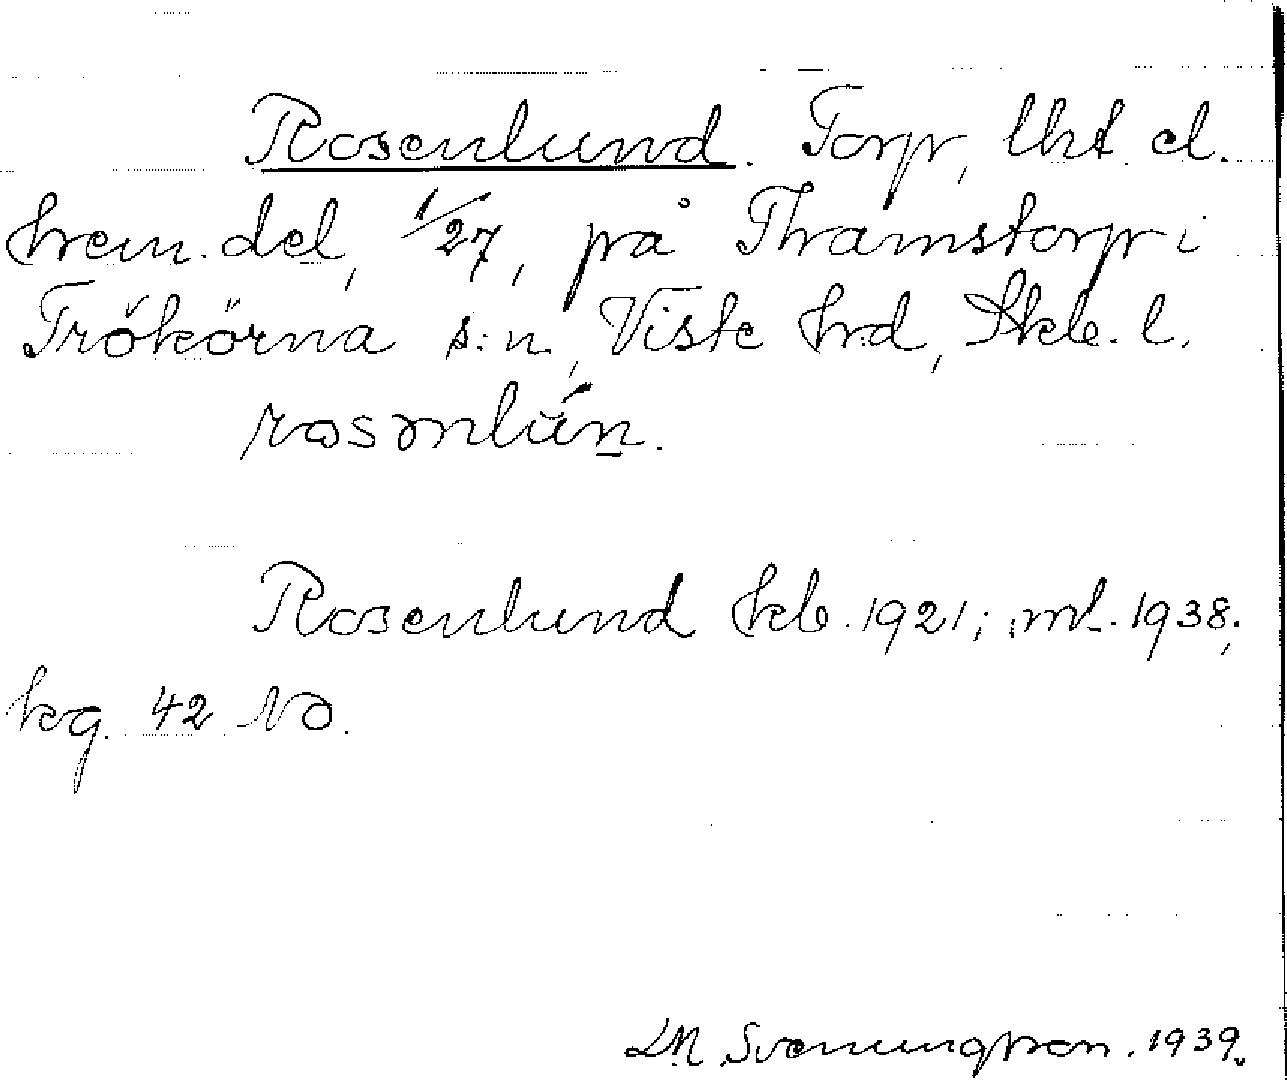 Rosenlund. Torp, lht. el.
hem. del, 1/27, på Thamstorp i
Trökörna s:n, Viste hrd, Skb. l.
rosənlún.
Rosenlund hkb. 1921; ml. 1938;
kg. 42 No.
D.M. Svenungsson. 1939.